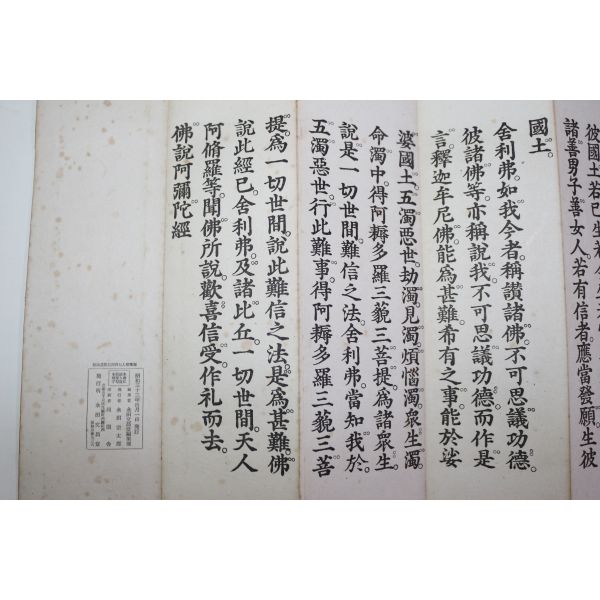 彼國土若已生若今生若
諸善男子善女人若有信者應當發願生彼
國土。
舍利弗。如我今者。稱讚諸佛。不可思議功德。
彼諸佛等。亦稱說我。不可思議功德。而作是
言。釋迦牟尼佛。能爲甚難希有之事。能於娑
婆國土。五濁惡世。劫濁。見濁。煩惱濁。衆生濁。
命濁中。得阿耨多羅三藐三菩提。爲諸衆生。
說是一切世間。難信之法。舍利弗。當知我於
五濁惡世。行此難事。得阿耨多羅三藐三菩
提。爲一切世間。說此難信之法。是爲甚難。佛
說此經已。舍利弗。及諸比丘。一切世間。天人
阿脩羅等。聞佛所說。歡喜信受。作礼而去。
佛說阿彌陀經